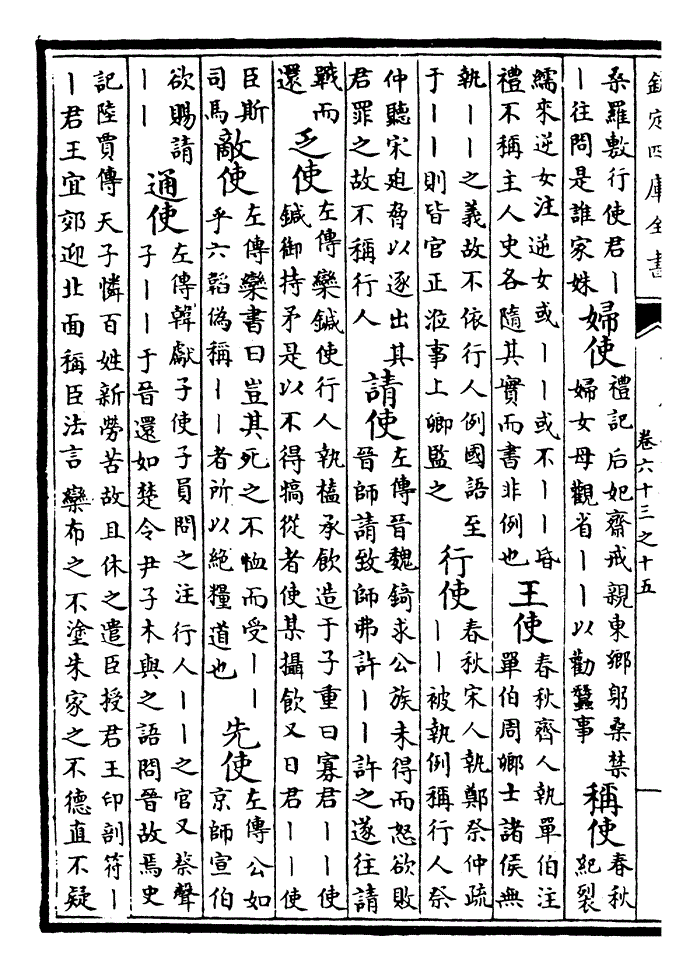 欽定四庫全書
卷六十三之十五
桑羅敷行使君丨
丨往問是誰家姝
婦使
禮記后妃齋戒親東鄉躬桑禁
婦女毋觀省丨丨以勸蠶事
稱使
春秋
紀裂
繻來逆女注逆女或丨丨或不丨丨昏
禮不稱主人史各隨其實而書非例也
王使
春秋齊人執單伯注
單伯周卿士諸侯無
執丨丨之義故不依行人例國語至
于丨丨則皆官正涖事上卿監之
行使
春秋宋人執鄭祭仲疏
丨丨被執例稱行人祭
仲聽宋廹脅以逐出其
君罪之故不稱行人
請使
左傳晉魏錡求公族未得而怒欲敗
晉師請致師弗許丨丨許之遂往請
戰而
還
乏使
左傳欒鍼使行人執榼承飲造于子重曰寡君丨丨使
鍼御持矛是以不得犒從者使某攝飲又曰君丨丨使
臣斯
司馬
敵使
左傳欒書曰豈其死之不恤而受丨丨
乎六韜偽稱丨丨者所以絶糧道也
先使
左傳公如
京師宣伯
欲賜請
丨丨
通使
左傳韓獻子使子員問之注行人丨丨之官又蔡聲
子丨丨于晉還如楚令尹子木與之語問晉故焉史
記陸賈傳天子憐百姓新勞苦故且休之遣臣授君王印剖符丨
丨君王宜郊迎北面稱臣法言欒布之不塗朱家之不德直不疑